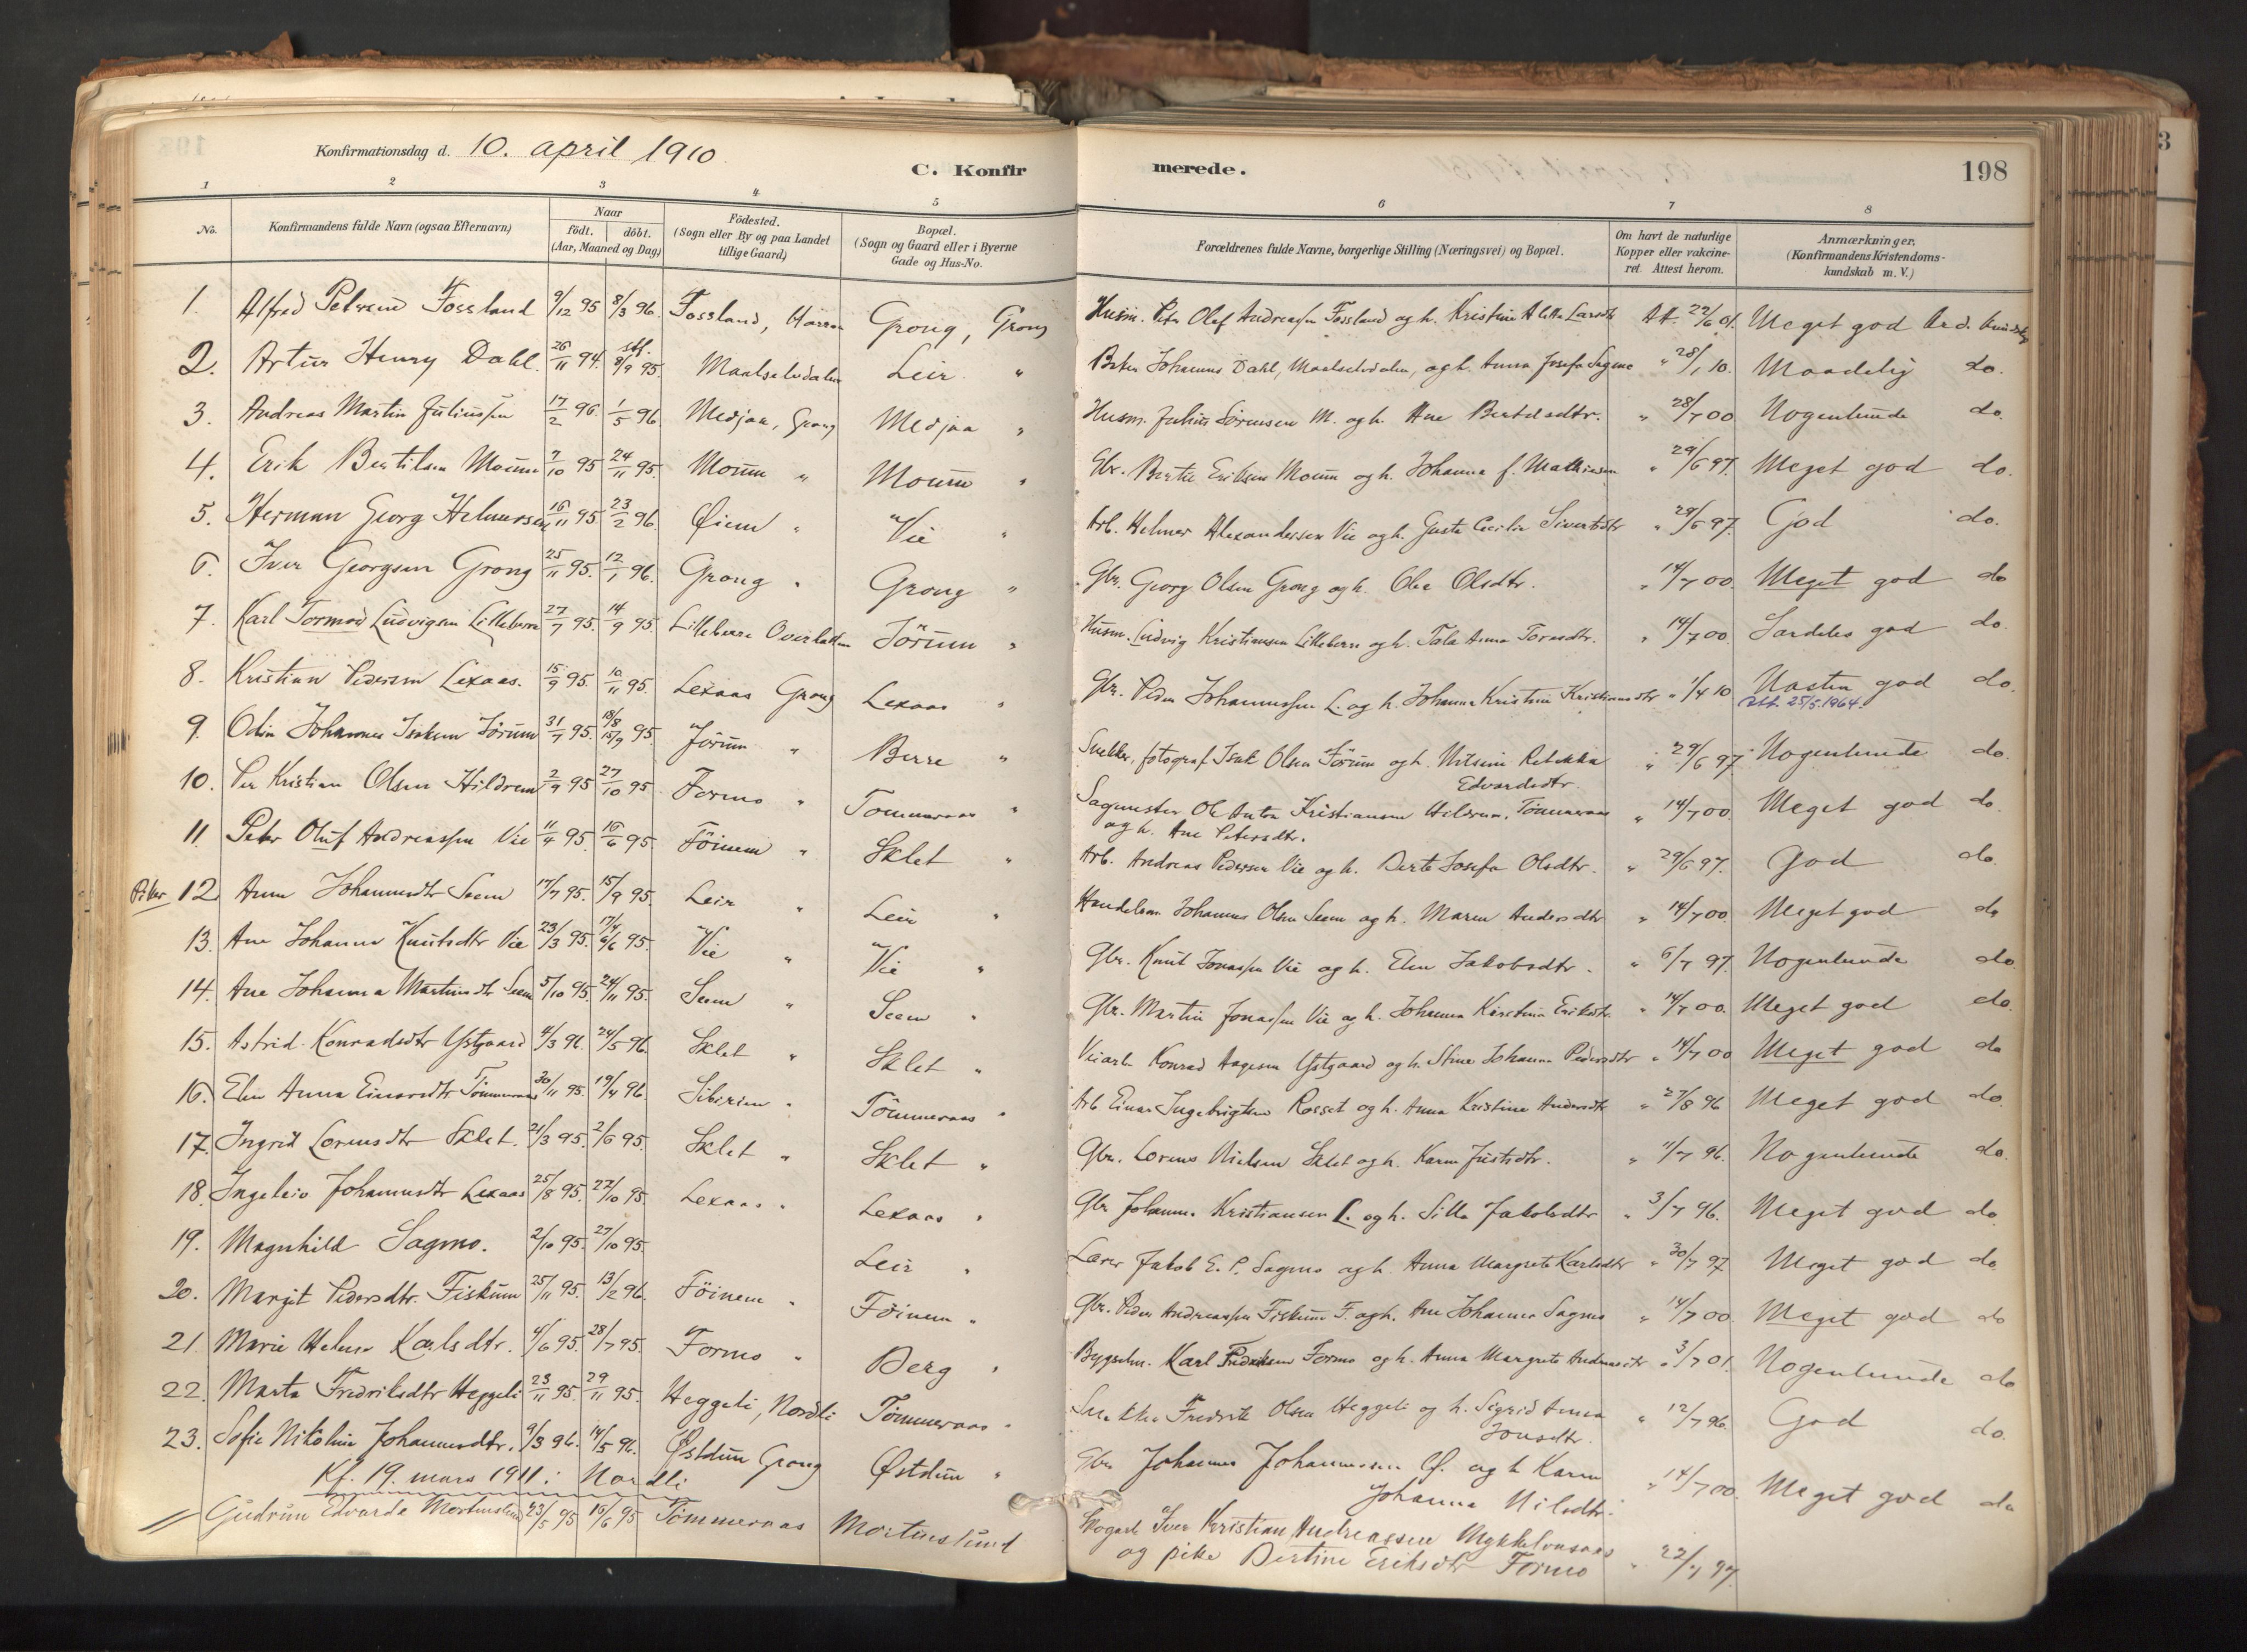 Konfirmationsdag d. 10. april 1910
C. Konfirmerede.
198
1 2 3 4 5 6 7 8
No.
Konfirmandens fulde Navn (ogsaa Efternavn)
Naar
födt. döbt.
(Aar, Maaned og Dag)
Födested.
(Sogn eller By og paa Landet
tillige Gaard)
Bopæl.
(Sogn og Gaard eller i Byerne
Gade og Hus-No.
Forældrenes fulde Navne, borgerlige Stilling (Næringsvei) og Bopæl.
Om havt de naturlige
Kopper eller vakcine-
ret. Attest herom.
Anmærkninger.
(Konfirmandens Kristendoms-
kundskab m. V.)
1. Alfred Fossland 9/12 95 8/3 96. Fossland, Grong, Grong Husm. Olaf Andreassen Fossland og h. Kristine Larsdtr Att. 22/6 01. Meget god
2. Artur Henry Dahl. 26/11 94. 8/9 95. Maalselvdalen Leir " Johannes Dahl, Maalselvdalen, og h. Anna Josefa Sagmo " 28/1 10. Maadelig do.
3. Andreas Martin Juliussen 17/2 96. 1/5 96. Medjaa, Grong Medjaa " Husm. Julius Sörensen M. og h. Ane Bertelsdtr. " 28/7 00 Nogenlunde do.
4. Erik Bertilsen Moum 7/10 95 24/11 95. Moum " Moum " Gbr. Eriksen Moum og h. Johanna f. " 29/6 97. Meget god do.
5. Herman Georg Helmersen 16/11 95. 23/2 96. Öium " Vie " Arb. Helmer Alexandersen Vie og h. Cecilie Sivertsdtr " 29/6 97. God do.
6. Iver Georgsen Grong 25/11 95. 12/1 96. Grong " Grong " Gbr. Georg Olsen Grong og h. Olea Olsdtr. " 14/7 00 Meget god do
7. Karl Tormod Ludvigsen Lilleberre 27/7 95. 14/9 95. Lilleberre Overhallen Jörum " Husm. Ludvig Kristiansen Lilleberre og h. Anna " 14/7 00. Særdeles god do.
8. Kristian Pedersen Lexaas. 15/9 95. 10/11 95. Lexaas Grong Lexaas " Gbr. Peder Johannessen L. og h. Johanna Kristine Kristiansdtr " 1/4 10 Næsten god do.
Att. 25/5.1964.
9. Odin Johannes Isaksen Jörum 31/7 95. 18/8 15/9 95. Jörum " Berre " Snekker, fotograf Isak Olsen Jörum og h. Nilsine Rebekka Edvardsdtr. " 29/6 97 Nogenlunde do.
10. Per Kristian Olsen Hildrem 2/9 95 27/10 95. Formo " Tömmeraas " Sagmester Ole Anton Kristiansen Hildrum, Tömmeraas
og h. Ane Petersdtr. " 14/7 00. Meget god do
11. Peter Oluf Andreassen Vie 11/4 95. 16/6 95. Föinem " Sklet " Arb. Andreas Pedersen Vie og h. Berte Josefa Olsdtr. " 29/6 97. God do.
Piker 12. Anna Johannesdtr Seem 17/7 95. 15/9 95. Leir " Leir " Handelsm. Johannes Olsen Seem og h. Maren Andersdtr " 14/7 00. Meget god do
13. Ane Johanna Knutsdtr Vie 23/3 95. 17/4 6/6 95. Vie " Vie " Gbr. Knut Jonassen Vie og h. Elen Jakobsdtr. " 6/7 97. Nogenlunde do.
14. Ane Johanna Martinsdtr Seem 5/10 95. 24/11 95. Seem " Seem " Gbr. Martin Jonassen Vie og h. Johanna Kirstine Eriksdtr. " 14/7 00. Meget god do.
15. Astrid Konradsdtr Ystgaard 4/3 96. 24/5 96. Sklet " Sklet " Veiarb. Konrad Aagesen Ystgaard og h. Stine Johanna Pedersdtr " 14/7 00 Meget god do
16. Elen Anna Einarsdtr Tömmeraas 30/11 95. 19/4 96. Sibirien " Tömmeraas " Arb Einar Ingebrigtsen Rosset og h. Anna Kristine Andersdtr " 27/8 96 Meget god do.
17. Ingrid Lorensdtr Sklet. 21/3 95. 2/6 95. Sklet " Sklet " Gbr. Lorens Nielsen Sklet og h. Karen Justsdtr. " 11/7 96. Nogenlunde do.
18. Ingeleiv Johannesdtr Lexaas 25/8 95. 27/10 95. Lexaas " Lexaas " Gbr Johannes Kristiansen L. og h. Silla Jakobsdtr " 3/7 96. Meget god do
19. Magnhild Sagmo. 2/10 95. 27/10 95. Leir " Lærer Jakob E. P. Sagmo og h. Anna Margrete Karlsdtr " 30/7 97 Meget god do
20. Margit Pedersdtr. Fiskum 25/11 95. 13/2 96. Föinem " Föinem " Gbr. Peder Andreassen Fiskum F. og h. Ane Johanna Sagmo " 14/7 00. Meget god do
21. Marie Helene Karlsdtr. 4/6 95. 28/7 95. Formo " Berg " Bygselm. Karl Fredriksen Formo og h. Anna Margrete Andreasdtr " 3/7 01. Nogenlunde do
22. Marta Fredriksdtr Heggeli 23/11 95. 29/11 95. Heggeli, Nordli Tömmeraas " Snekker Fredrik Olsen Heggeli og h. Sigrid Anna Jonsdtr. " 12/7 96. God do.
23. Sofie Nikoline Johannesdtr. 9/3 96. 14/5 96. Östdun Grong Östdun " Gbr Johannes Johannessen Ö. og h Karen
Johanna Nilsdtr. " 14/7 00. Meget god do
Kf. 19. mars 1911 i Nordli
Gudrun Edvarda Mortenslund 23/5 95 16/6 95 Tömmeraas Mortenslund Iver Kristian Andreassen Mykkelvensaas
og pike Bertine Eriksdtr Formo " 22/7 97.